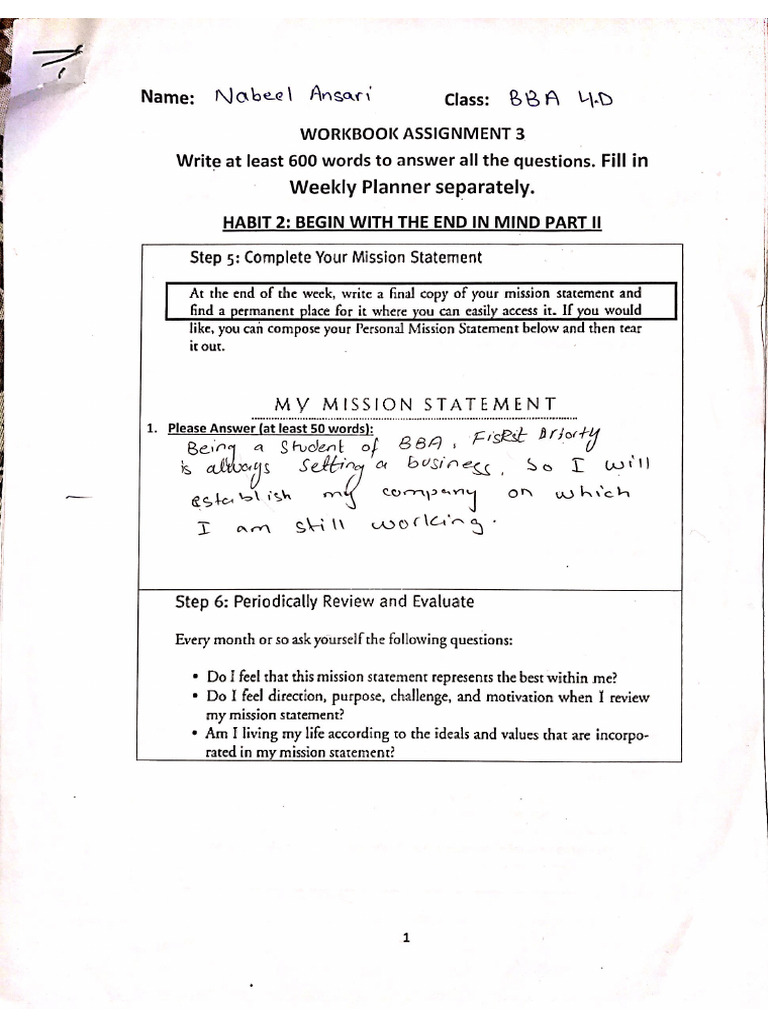 Name: Nabeel Ansari Class: BBA 4.D
WORKBOOK ASSIGNMENT 3
Write at least 600 words to answer all the questions. Fill in
Weekly Planner separately.
HABIT 2: BEGIN WITH THE END IN MIND PART II
Step 5: Complete Your Mission Statement
At the end of the week, write a final copy of your mission statement and
find a permanent place for it where you can easily access it. If you would
like, you can compose your Personal Mission Statement below and then tear
it out.
MY MISSION STATEMENT
1. Please Answer (at least 50 words):
Being a Student of BBA,
is always setting a business, So I will
establish my company on which
I am still working.
Step 6: Periodically Review and Evaluate
Every month or so ask yourself the following questions:
• Do I feel that this mission statement represents the best within me?
• Do I feel direction, purpose, challenge, and motivation when I review
my mission statement?
• Am I living my life according to the ideals and values that are incorpo-
rated in my mission statement?
1